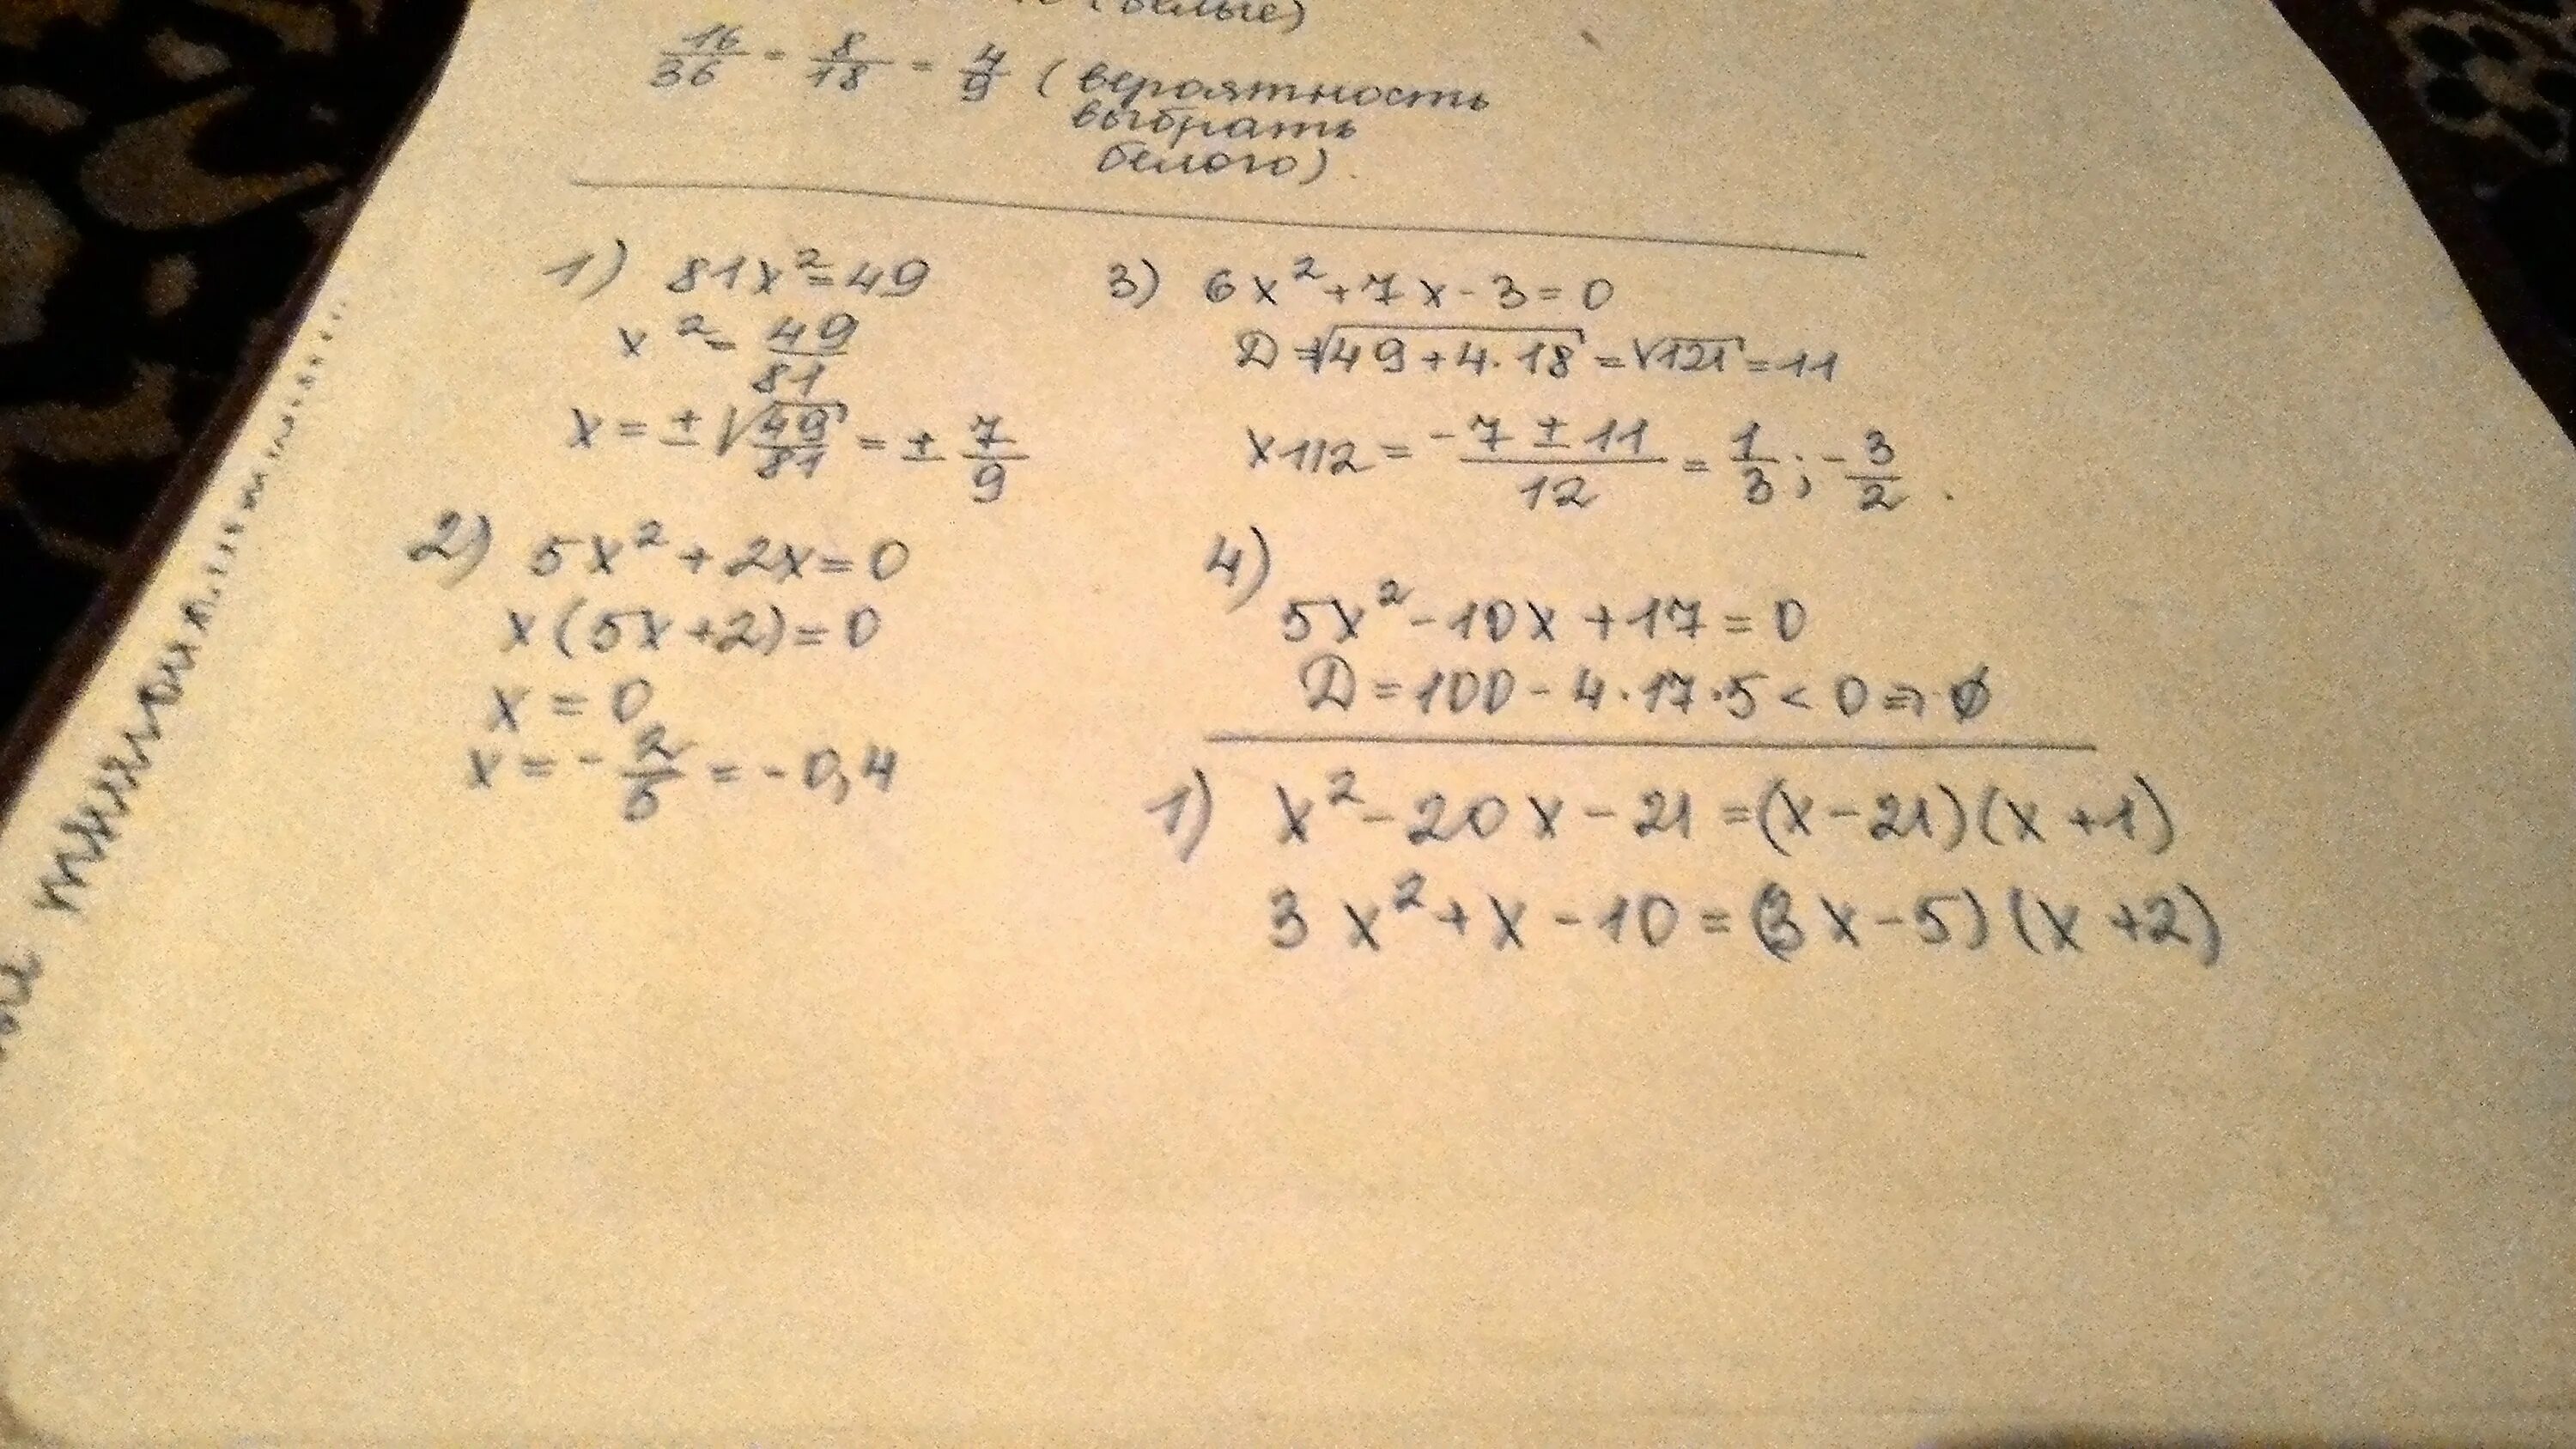 (белые)
16/36 = 8/18 = 4/9 (вероятность
выбрать
белого).
1) 81x² = 49
x² = 49/81
x = ± √(49/81) = ± 7/9
2) 5x² + 2x = 0
x(5x+2) = 0
x = 0
x = - 2/5 = -0,4
3) 6x² + 7x - 3 = 0
D = √(49 + 4·18) = √121 = 11
x1,2 = (-7 ± 11)/12 = 1/3; -3/2.
4)
5x² - 10x + 17 = 0
D = 100 - 4·17·5 < 0 ⇒ ∅
1) x² - 20x - 21 = (x - 21)(x + 1)
3x² + x - 10 = (3x - 5)(x + 2)